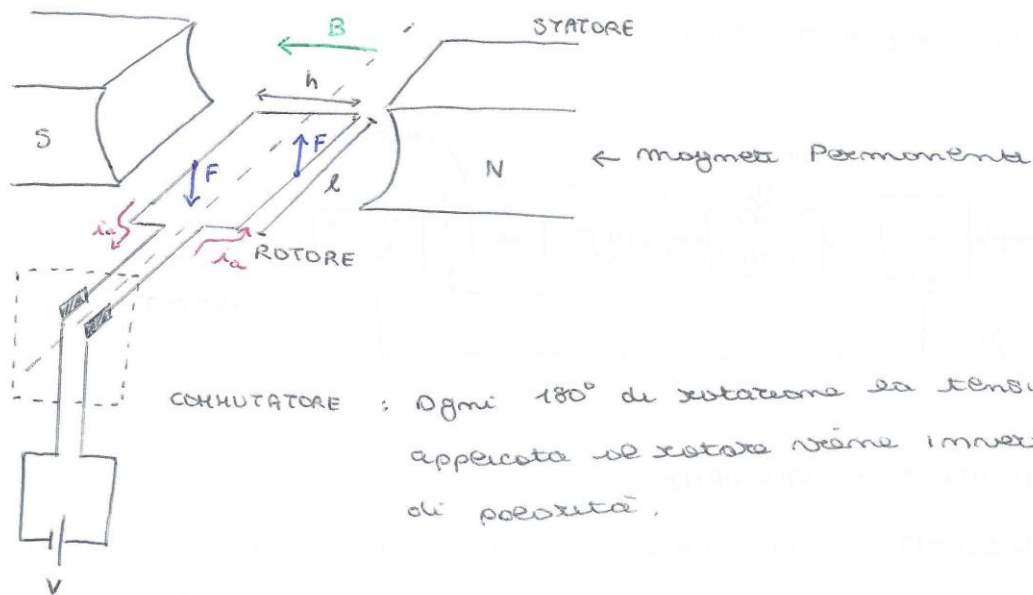 STATORE
B
h
S
F
F
l
N
← magneti Permanenti
ia
ia
ROTORE
COMMUTATORE : Ogni 180° di rotazione la tensi
applicata al rotore viene inver
di polarità.
V